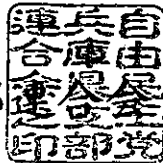 自由民主党
兵庫県支部
連合会之印